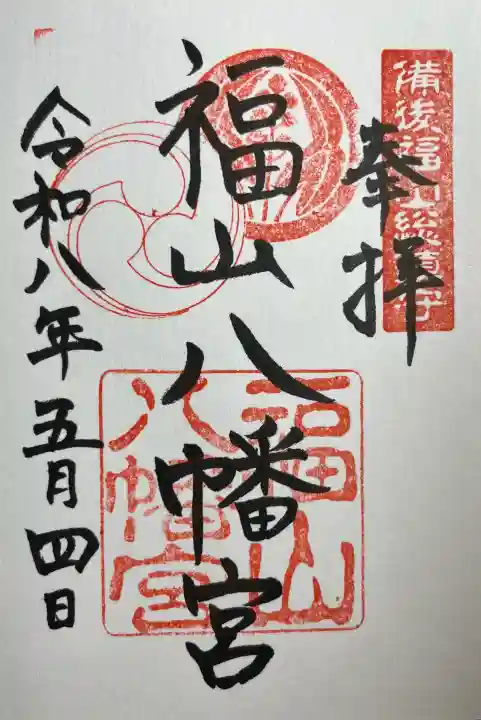 備後福山総鎮守
奉拝
福山八幡宮
福山
八幡宮
令和八年五月四日